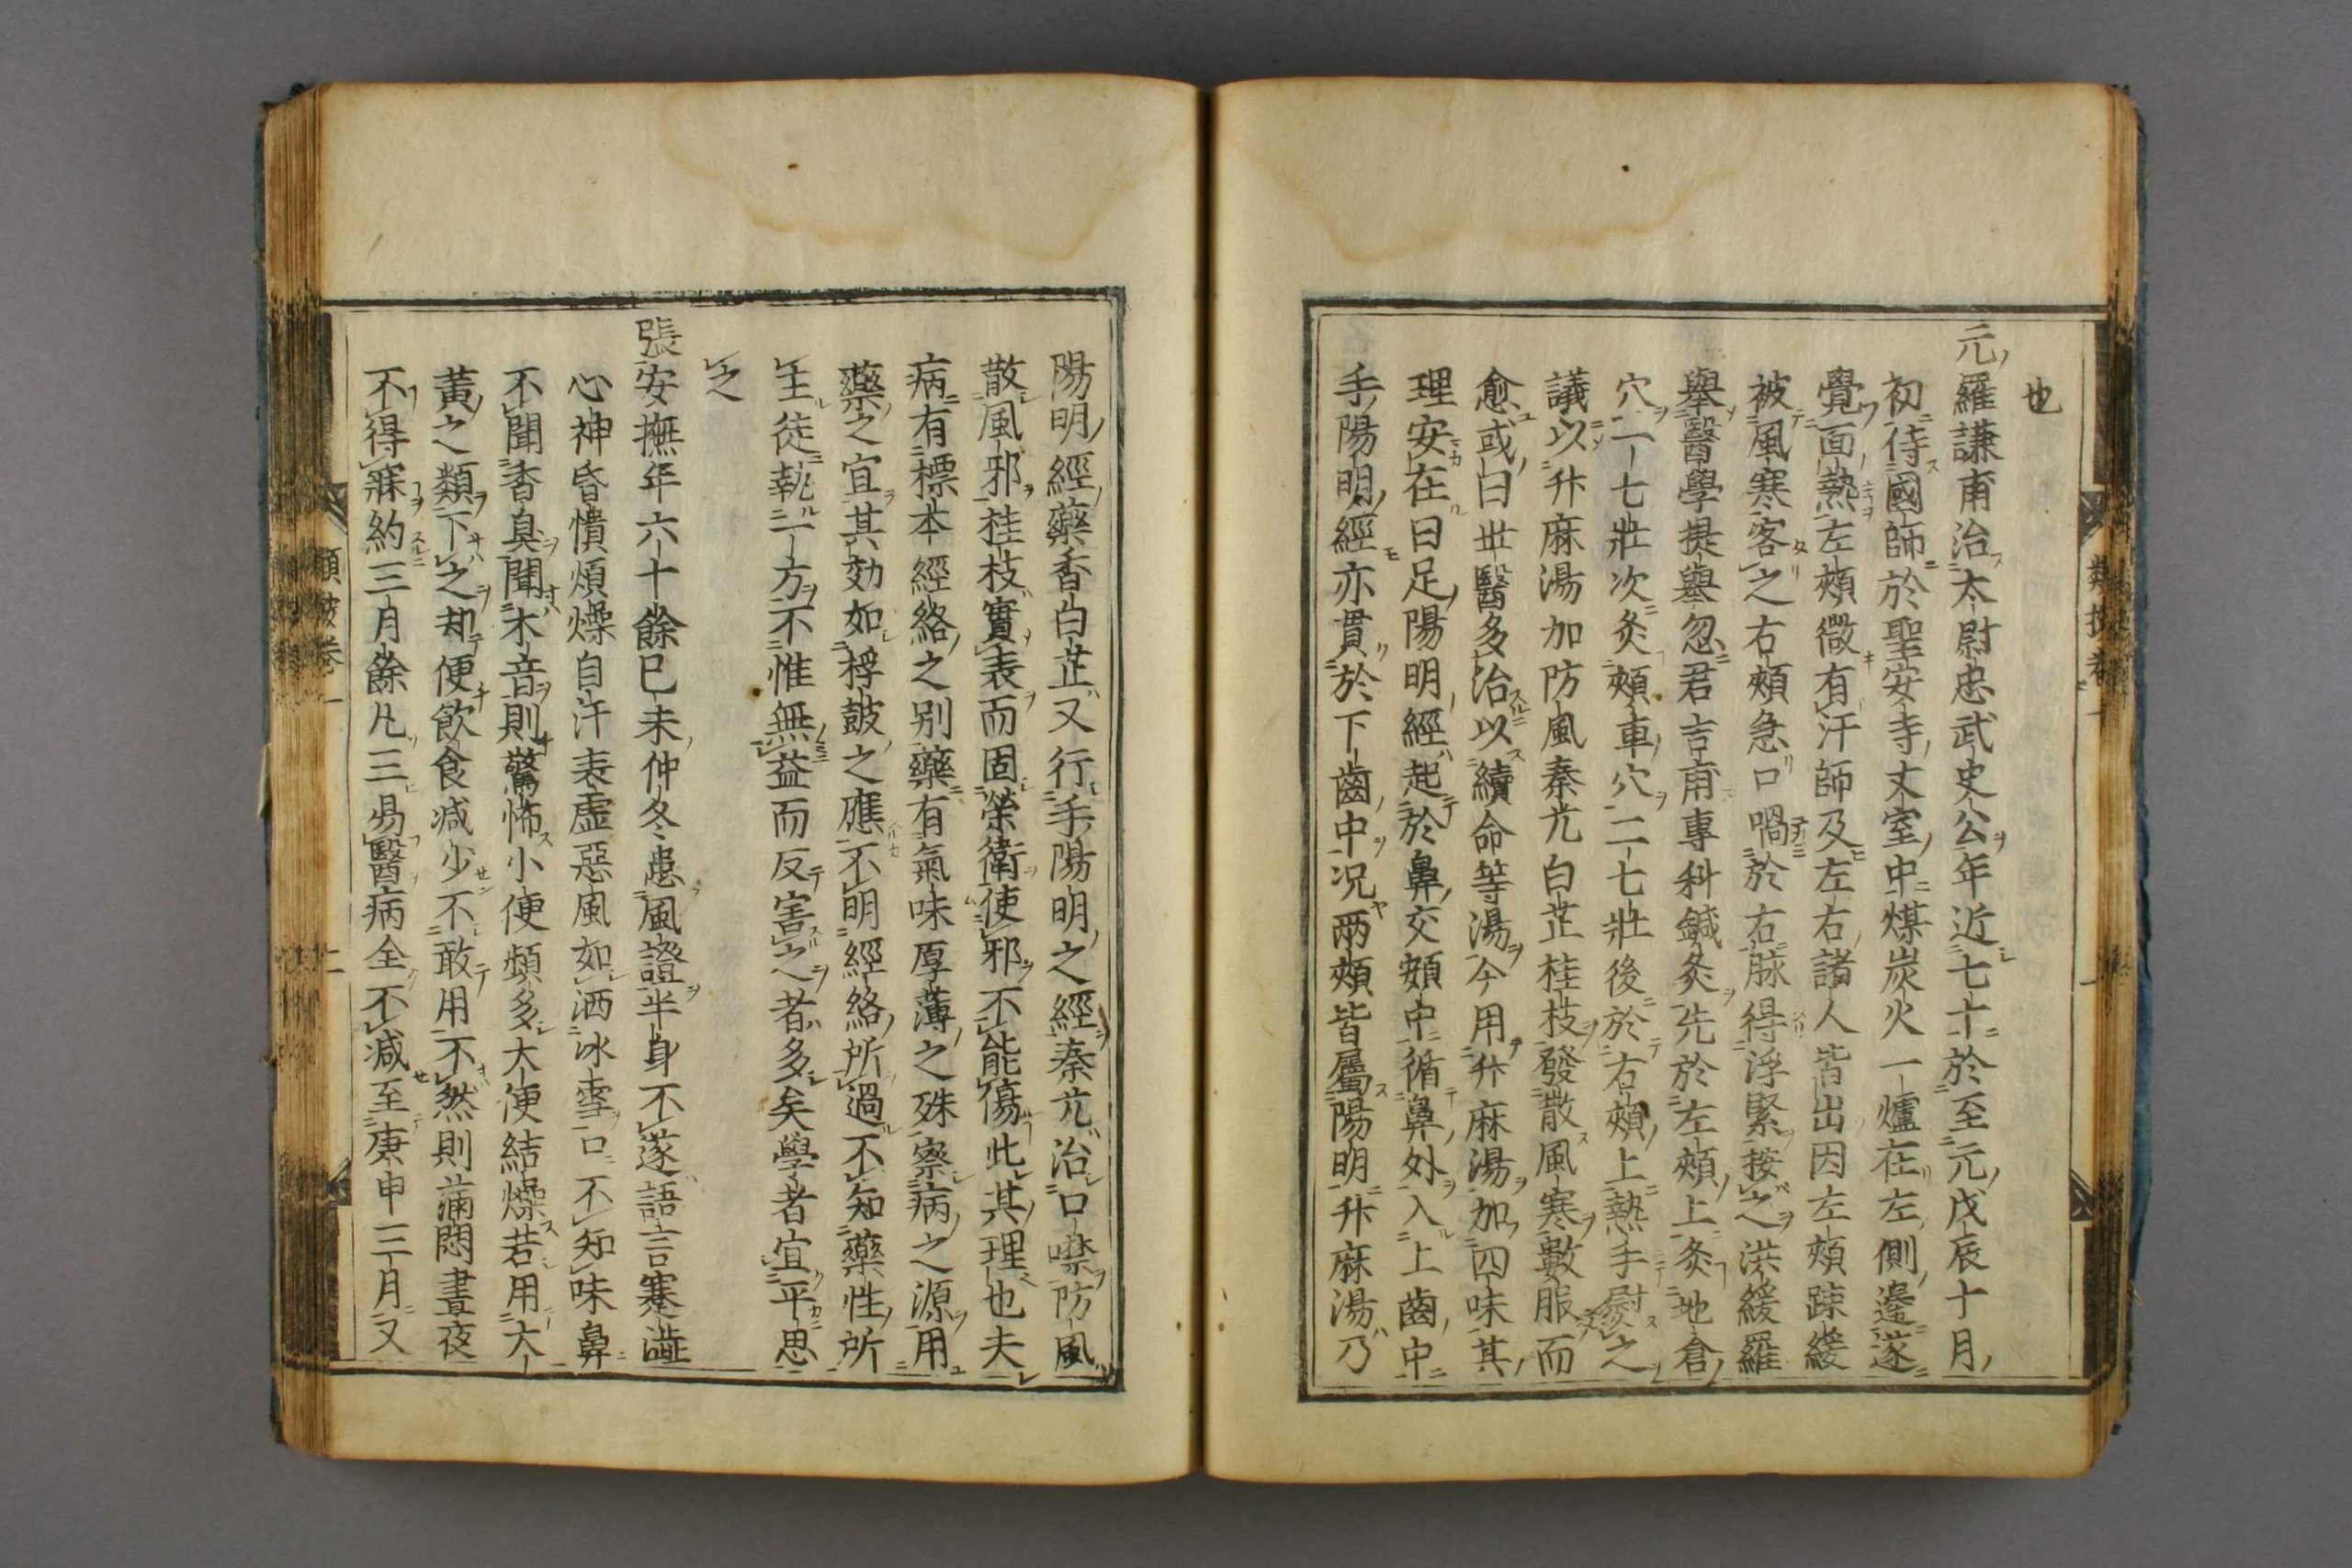 也
元羅謙甫治太尉忠武史公年近七十於至元戊辰十月
初侍國師於聖安寺丈室中煤炭火一爐在左側邊遂
覺面熱左頰微有汗師及左右諸人皆出因左頰疎緩
被風寒客之右頰急口喎於右脉得浮緊按之洪緩羅
舉醫學提舉忽君吉甫專科鍼灸先於左頰上灸地倉
穴一七壯次灸頰車穴二七壯後於右頰上熱手熨之
議以升麻湯加防風秦艽白芷桂枝發散風寒數服而
愈或曰世醫多治以續命等湯今用升麻湯加四味其
理安在曰足陽明經起於鼻交頞中循鼻外入上齒中
手陽明經亦貫於下齒中况兩頰皆屬陽明升麻湯乃
陽明經藥香白芷又行手陽明之經秦艽治口噤防風
散風邪桂枝實表而固榮衛使邪不能傷此其理也夫
病有標本經絡之别藥有氣味厚薄之殊察病之源用
藥之宜其効如桴鼓之應不明經絡所過不知藥性所
主徒執一方不惟無益而反害之者多矣學者宜平思
之
張安撫年六十餘己未仲冬患風證半身不遂語言蹇澁
心神昏憒煩燥自汗表虛惡風如洒冰雪口不知味鼻
不聞香臭聞木音則驚怖小便頻多大便結燥若用大
黃之類下之却便飲食减少不敢用不然則滿悶晝夜
不得寐約三月餘凡三易醫病全不减至庚申三月又
類按卷一
二